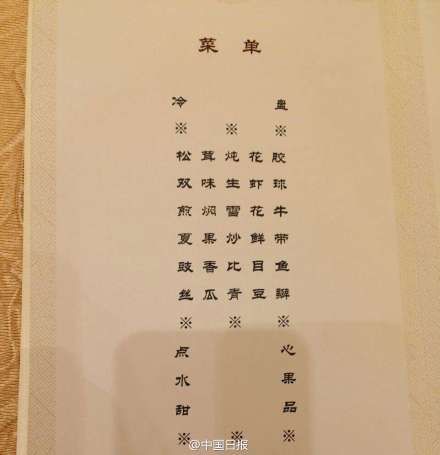 菜 单
冷 盘
※ ※ ※
松 茸 炖 花 胶
双 味 生 虾 球
煎 焖 雪 花 牛
夏 果 炒 鲜 带
豉 香 比 目 鱼
丝 瓜 青 豆 瓣
※ ※ ※
点 心
水 果
甜 品
※ ※ ※
@中国日报